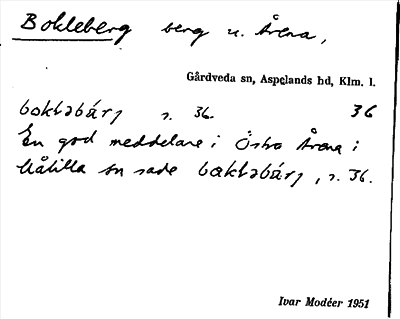 Bokleberg berg u. Årena,
Gårdveda sn, Aspelands hd, Klm. l.
boktəbárj s. 36. 36
En god meddelare i Östra Årena i
Målilla sn sade baktəbárj, s. 36.
Ivar Modéer 1951